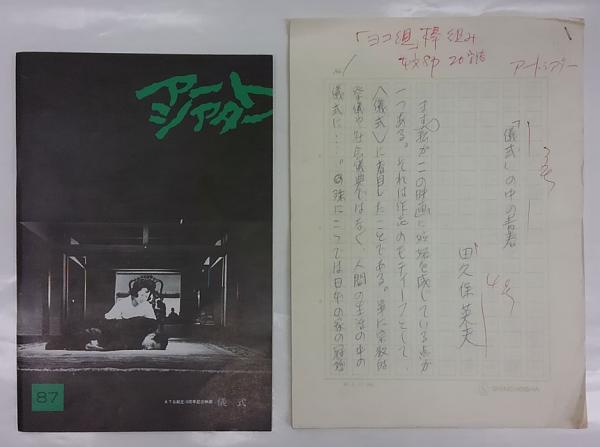 アート
シアター
87
ATG創立10周年記念映画 儀式
「ヨコ組」棒組み
20字詰
アートシアター
「儀式」の中の青春
3号
田久保英夫
4号
まず私がこの映画に を感じている点が
一つある。それは作品のモティーフとして、
〈儀式〉に着目したことである。単に宗教的
祭儀や社会儀典ではなく、人間の生活の中の
儀式に……。 にここでは日本の家の冠婚
SHINCHOSHA